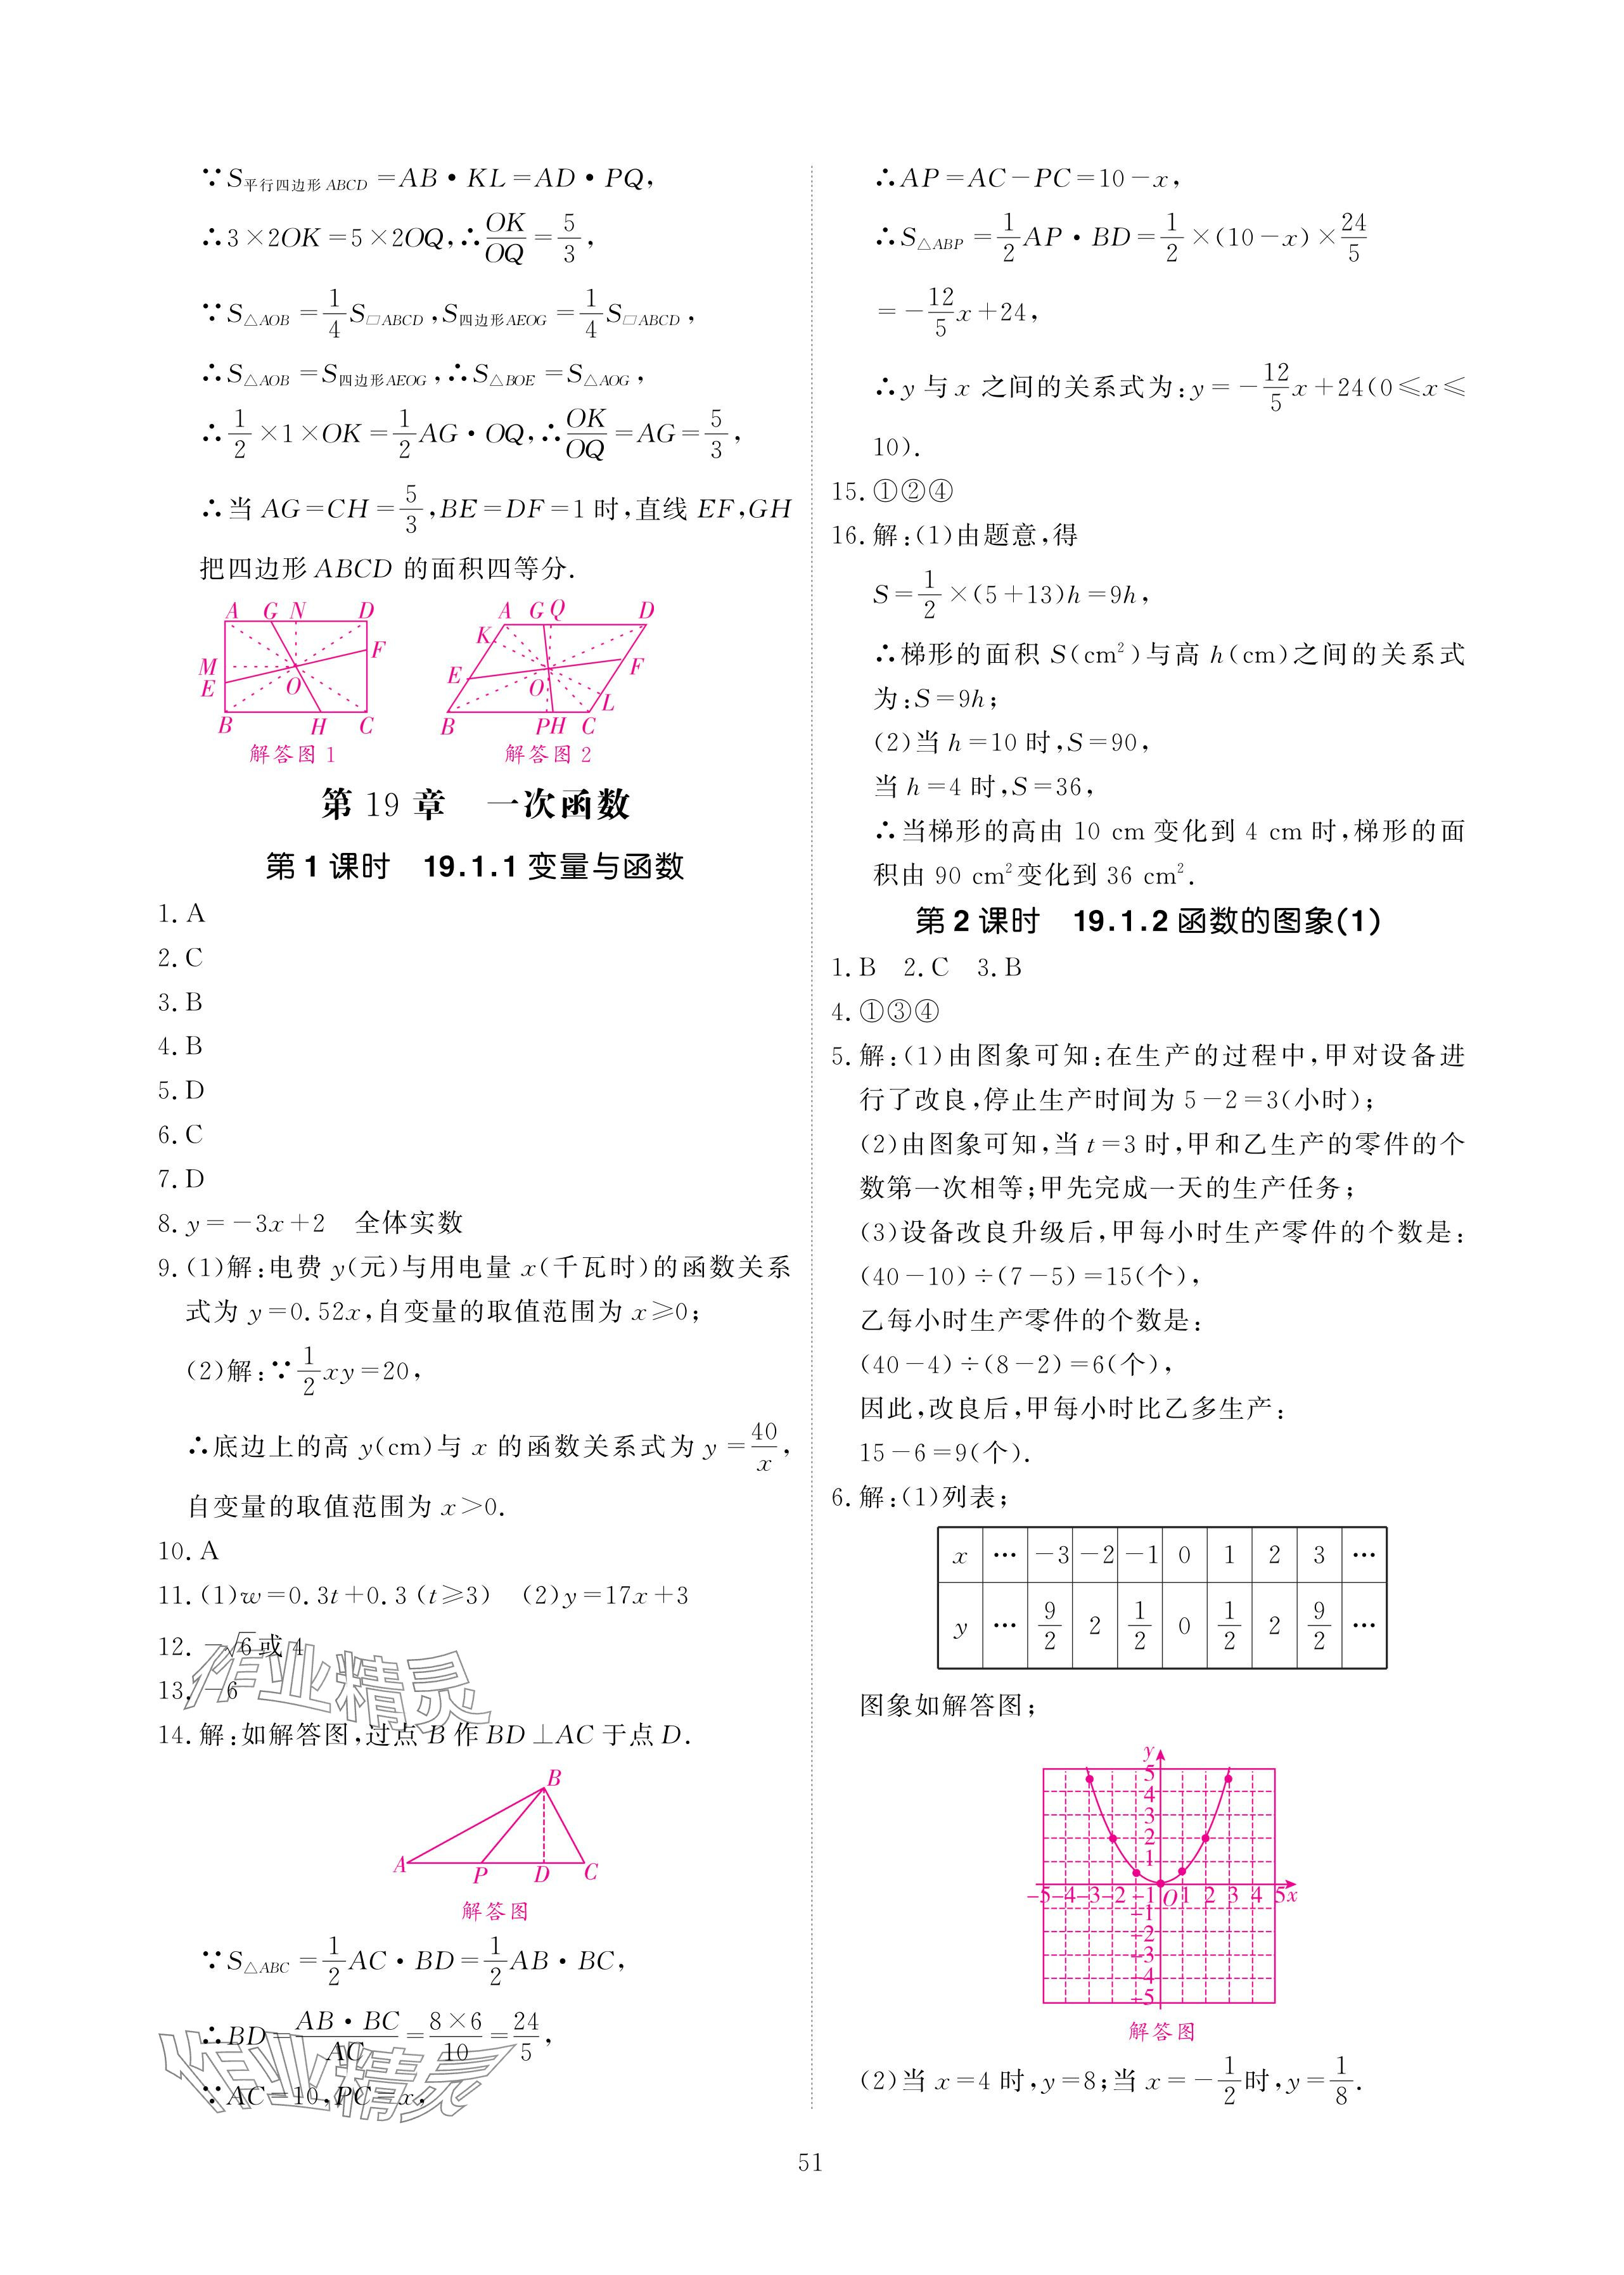 ∵S平行四边形ABCD=AB·KL=AD·PQ,
∴3×2OK=5×2OQ,∴OK/OQ=5/3,
∵S△AOB=1/4S□ABCD,S四边形AEOG=1/4S□ABCD,
∴S△AOB=S四边形AEOG,∴S△BOE=S△AOG,
∴1/2×1×OK=1/2AG·OQ,∴OK/OQ=AG=5/3,
∴当 AG=CH=5/3,BE=DF=1 时,直线 EF,GH
把四边形 ABCD 的面积四等分.
A G N D
M F
E O
B H C
解答图 1
A G Q D
K
E F
O L
B P H C
解答图 2
第 19 章 一次函数
第 1 课时 19.1.1 变量与函数
1. A
2. C
3. B
4. B
5. D
6. C
7. D
8. y=-3x+2 全体实数
9. (1)解:电费 y(元)与用电量 x(千瓦时)的函数关系
式为 y=0.52x,自变量的取值范围为 x≥0;
(2)解:∵1/2xy=20,
∴底边上的高 y(cm)与 x 的函数关系式为 y=40/x,
自变量的取值范围为 x>0.
10. A
11. (1)w=0.3t+0.3 (t≥3) (2)y=17x+3
12. -√6或 4
13. -6
14. 解:如解答图,过点 B 作 BD⊥AC 于点 D.
B
A P D C
解答图
∵S△ABC=1/2AC·BD=1/2AB·BC,
∴BD=AB·BC/AC=8×6/10=24/5,
∵AC=10,PC=x,
作业精灵
作业精灵
∴AP=AC-PC=10-x,
∴S△ABP=1/2AP·BD=1/2×(10-x)×24/5
=-12/5x+24,
∴y 与 x 之间的关系式为:y=-12/5x+24(0≤x≤
10).
15. ①②④
16. 解:(1)由题意,得
S=1/2×(5+13)h=9h,
∴梯形的面积 S(cm²)与高 h(cm)之间的关系式
为:S=9h;
(2)当 h=10 时,S=90,
当 h=4 时,S=36,
∴当梯形的高由 10 cm 变化到 4 cm 时,梯形的面
积由 90 cm²变化到 36 cm².
第 2 课时 19.1.2 函数的图象(1)
1. B 2. C 3. B
4. ①③④
5. 解:(1)由图象可知:在生产的过程中,甲对设备进
行了改良,停止生产时间为 5-2=3(小时);
(2)由图象可知,当 t=3 时,甲和乙生产的零件的个
数第一次相等;甲先完成一天的生产任务;
(3)设备改良升级后,甲每小时生产零件的个数是:
(40-10)÷(7-5)=15(个),
乙每小时生产零件的个数是:
(40-4)÷(8-2)=6(个),
因此,改良后,甲每小时比乙多生产:
15-6=9(个).
6. 解:(1)列表;
x … -3 -2 -1 0 1 2 3 …
y … 9/2 2 1/2 0 1/2 2 9/2 …
图象如解答图;
y
5
4
3
2
1
-5 -4 -3 -2 -1 O 1 2 3 4 5x
-1
-2
-3
-4
-5
解答图
(2)当 x=4 时,y=8;当 x=-1/2时,y=1/8.
51